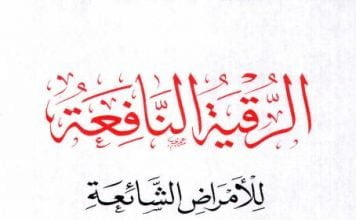 الرُّقيَةُ النَّافِعَةُ
لِلأمرَاضِ الشَّائِعَةِ